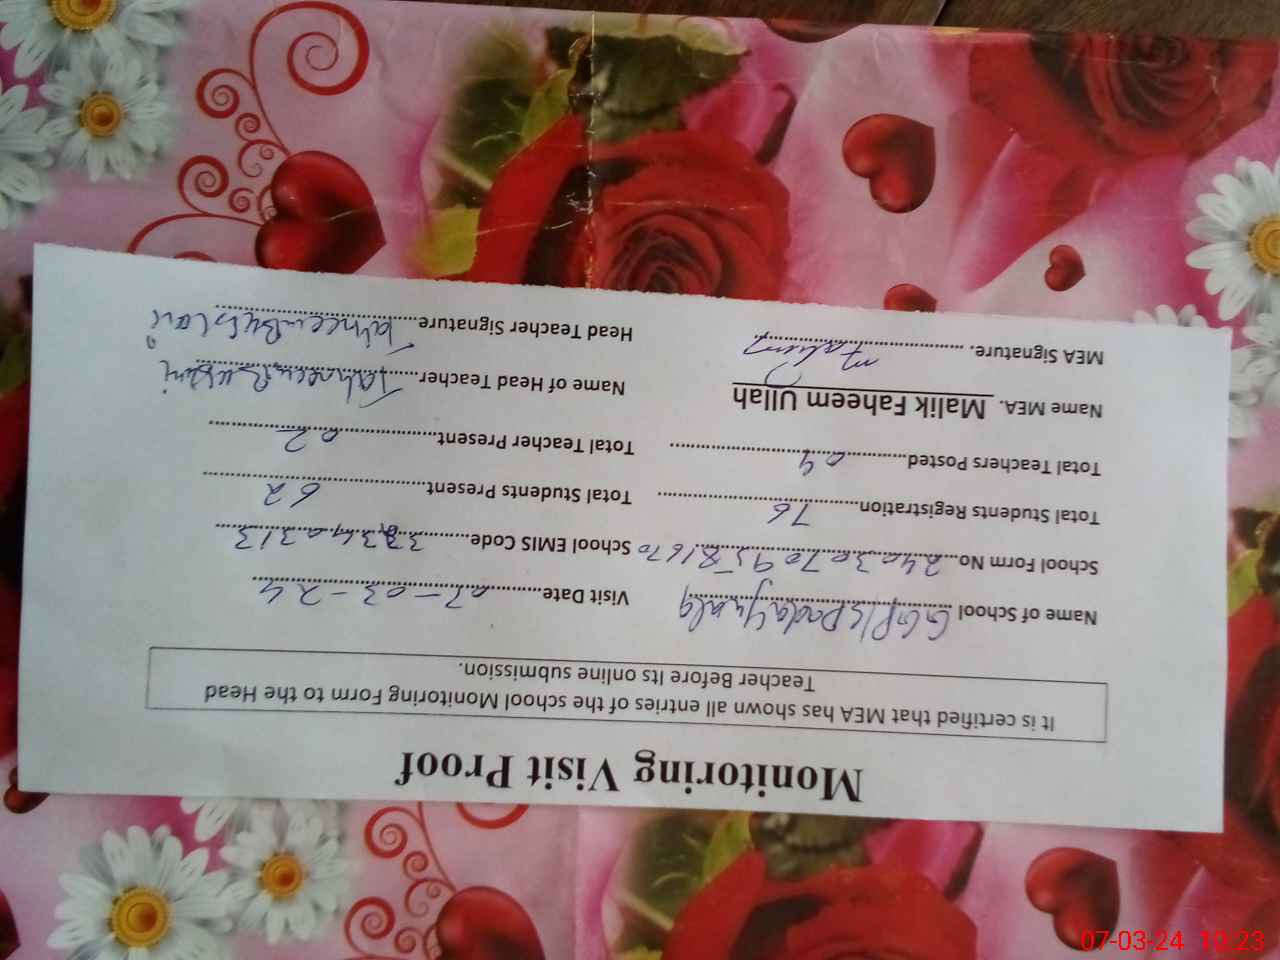 Monitoring Visit Proof
It is certified that MEA has shown all entries of the school Monitoring Form to the Head
Teacher Before Its online submission.
Name of School GGP/S Visit Date 07-03-24
School Form No. 24030709581670 School EMIS Code
Total Students Registration 76 Total Students Present 62
Total Teachers Posted 04 Total Teacher Present 02
Name MEA. Malik Faheem Ullah Name of Head Teacher
MEA Signature. Head Teacher Signature
07-03-24 10:23